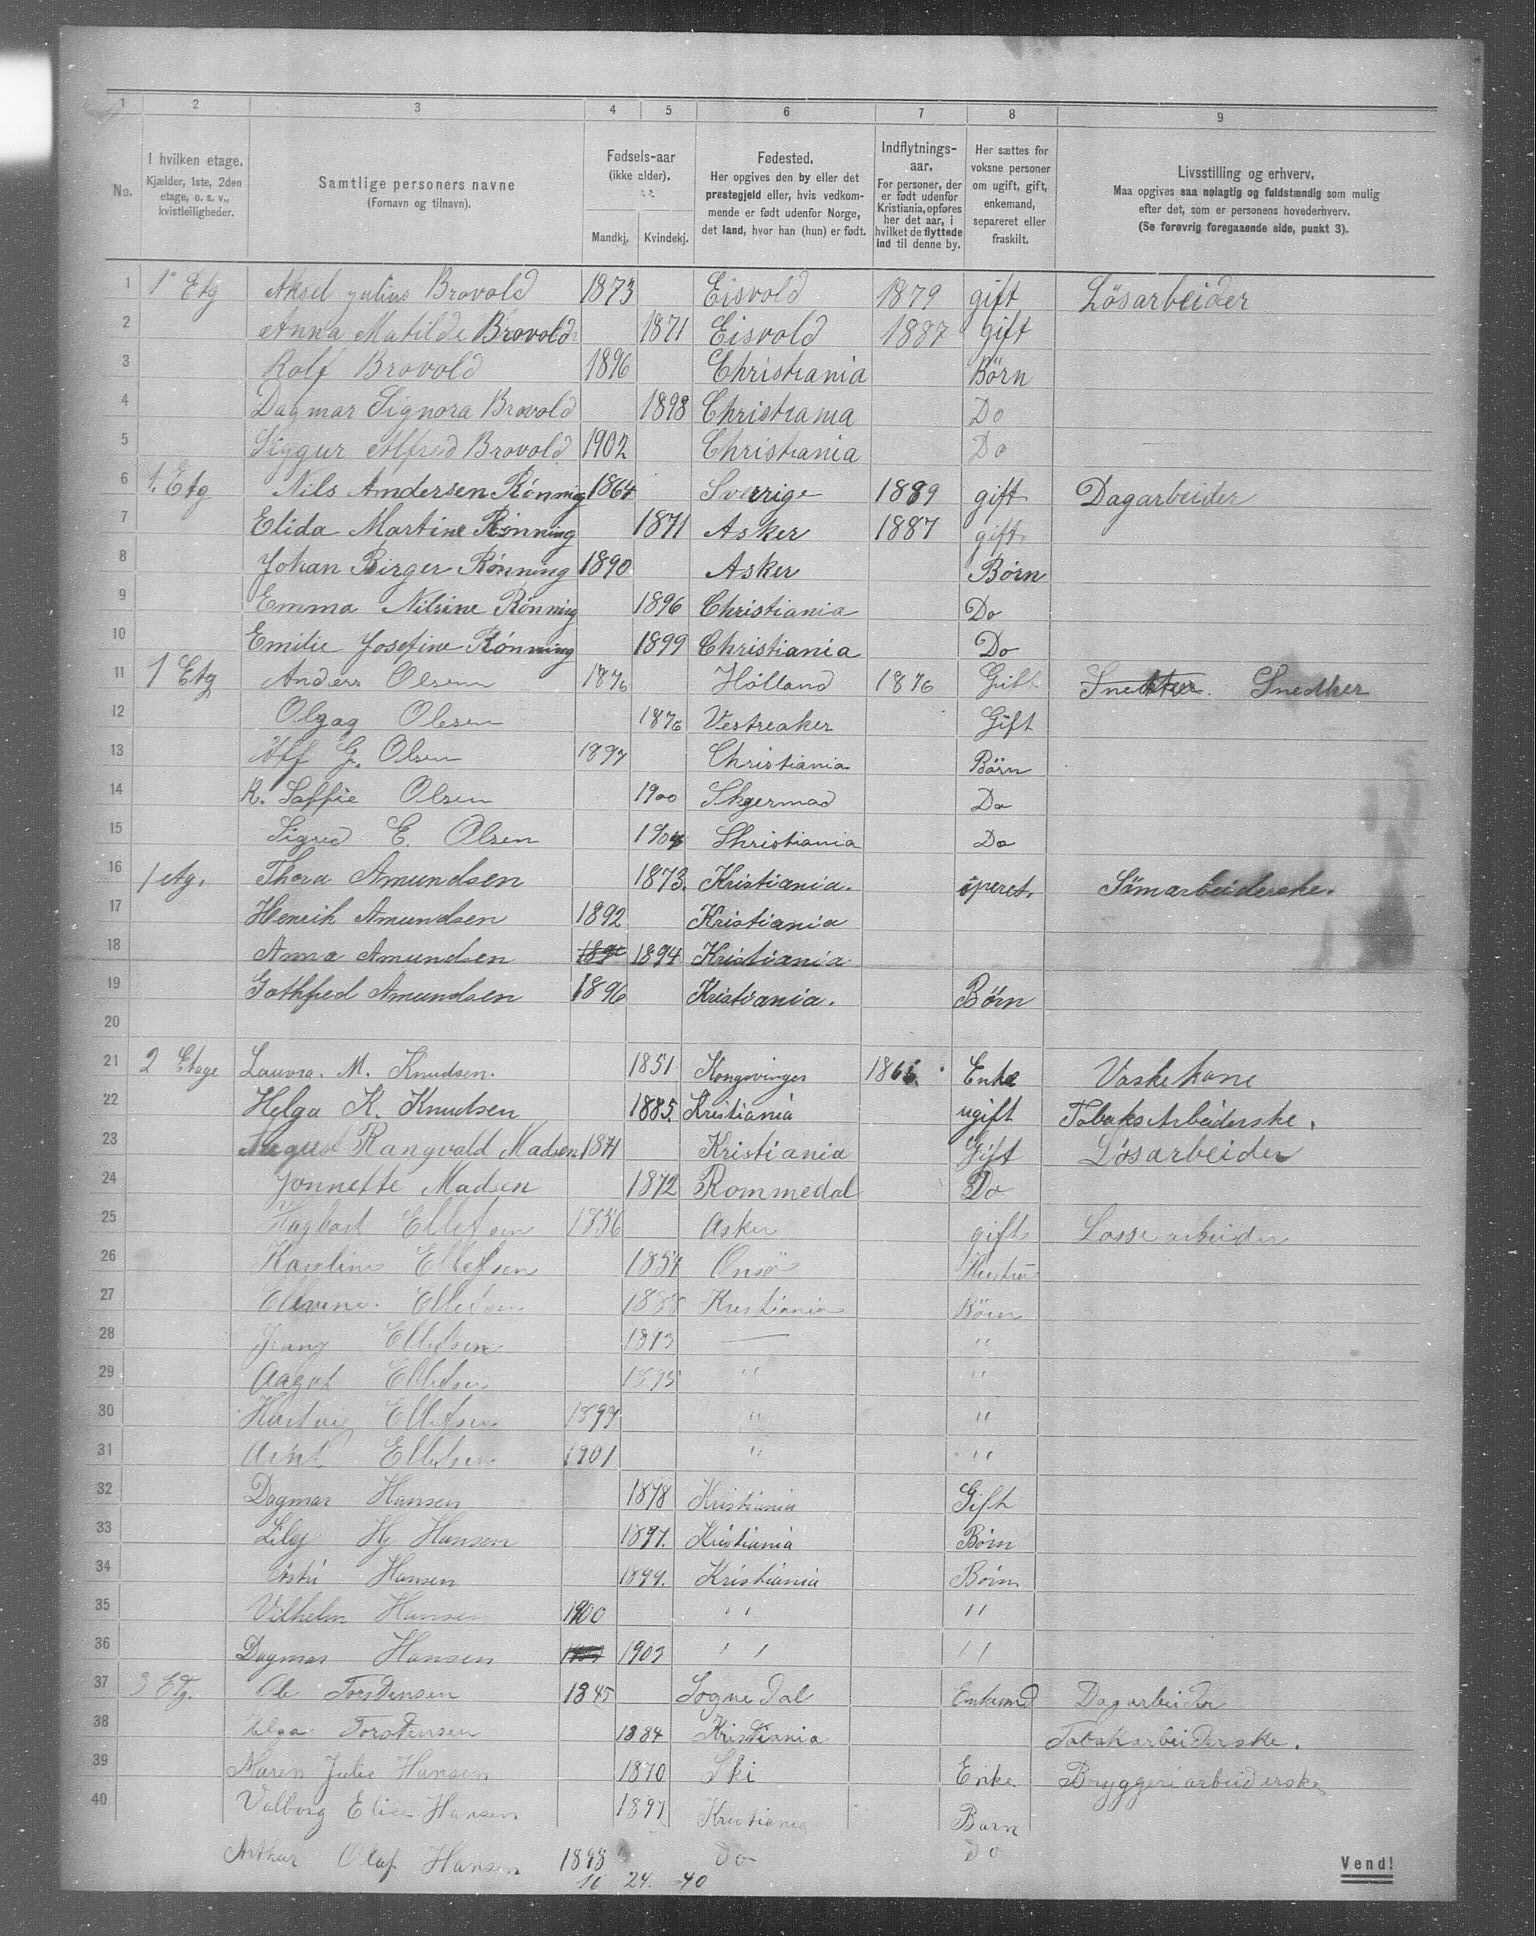 1 2 3 4 5 6 7 8 9
No.
I hvilken etage. Kjælder, 1ste, 2den etage, o. s. v., kvistleiligheder.
Samtlige personers navne (Fornavn og tilnavn).
Fødsels-aar (ikke alder). Mandkj. Kvindekj.
Fødested. Her opgives den by eller det prestegjeld eller, hvis vedkommende er født udenfor Norge, det land, hvor han (hun) er født.
Indflytnings-aar. For personer, der er født udenfor Kristiania, opføres her det aar, i hvilket de flyttede ind til denne by.
Her sættes for voksne personer om ugift, gift, enkemand, separeret eller fraskilt.
Livsstilling og erhverv. Maa opgives saa nøiagtig og fuldstændig som mulig efter det, som er personens hovederhverv. (Se forøvrig foregaaende side, punkt 3).
1 1ª Etg Aksel Julius Brovold 1873 Eisvold 1879 gift Lösarbeider
2 Anna Matilde Brovold 1871 Eisvold 1887 gift
3 Rolf Brovold 1896 Christiania Børn
4 Dagmar Signora Brovold 1898 Christiania Do
5 Siggur Alfred Brovold 1902 Christiania Do
6 1. Etg Nils Andersen Rønning 1864 Sverrige 1889 gift Dagarbeider
7 Elida Martine Rønning 1871 Asker 1887 gift
8 Johan Birger Rønning 1890 Asker Børn
9 Emma Nilsine Rønning 1896 Christiania Do
10 Emilie Josefine Rønning 1899 Christiania Do
11 1 Etg Anders Olsen 1876 Holland 1876 Gift Snekker. Snedker
12 Olgag Olesen 1876 Vestreaker Gift
13 G. Olsen 1897 Christiania Børn
14 R. Soffie Olsen 1900 Do
15 Sigred E. Olsen Christiania Do
16 1 etg. Thora Amundsen 1873. Kristiania. seperet. Sömarbeiderske.
17 Henrik Amundsen 1892 Kristiania
18 Anna Amundsen 1894 Kristiania
19 Gothfred Amundsen 1896 Kristiania. Børn
20
21 2 Etage Lauvra. M. Knudsen. 1851 Kongsvinger Enke Vaskekone
22 Helga K. Knudsen 1885. Kristiania ugift Tobaks Arbeiderske.
23 August Rangvald Madsen 1871 Kristiania Gift Løsarbeider
24 Jonnette Madsen 1872 Rommedal Do
25 Hagbart Ellefsen 1856 Asker gift Losse arbeider
26 Karoline Ellefsen 1854 Onsö Hustru
27 Ellefsen 1888 Kristiania Börn
28 Jenny Ellefsen 1893 — "
29 Aagot Ellefsen 1895 " "
30 Hartvig Ellefsen 1897 " "
31 Arnt Ellefsen 1901 " "
32 Dagmar Hansen 1878 Kristiania Gift
33 Lily Hj Hansen 1897. Kristiania Börn
34 Hansen 1899. Kristiania Börn
35 Vilhelm Hansen 1900 " "
36 Dagmar Hansen 1903 " "
37 3 Etg. Ole Torstensen 1845 Sognedal Enkemd Dagarbeider
38 Helga Torstensen 1884 Kristiania Tobakarbeiderske.
39 Maren Julie Hansen 1870 Ski Enke Bryggeriarbeiderske
40 Valborg Elise Hansen 1897 Kristiania Barn
Arthur Olaf Hansen 1898 do do
16 24. -40
Vend!